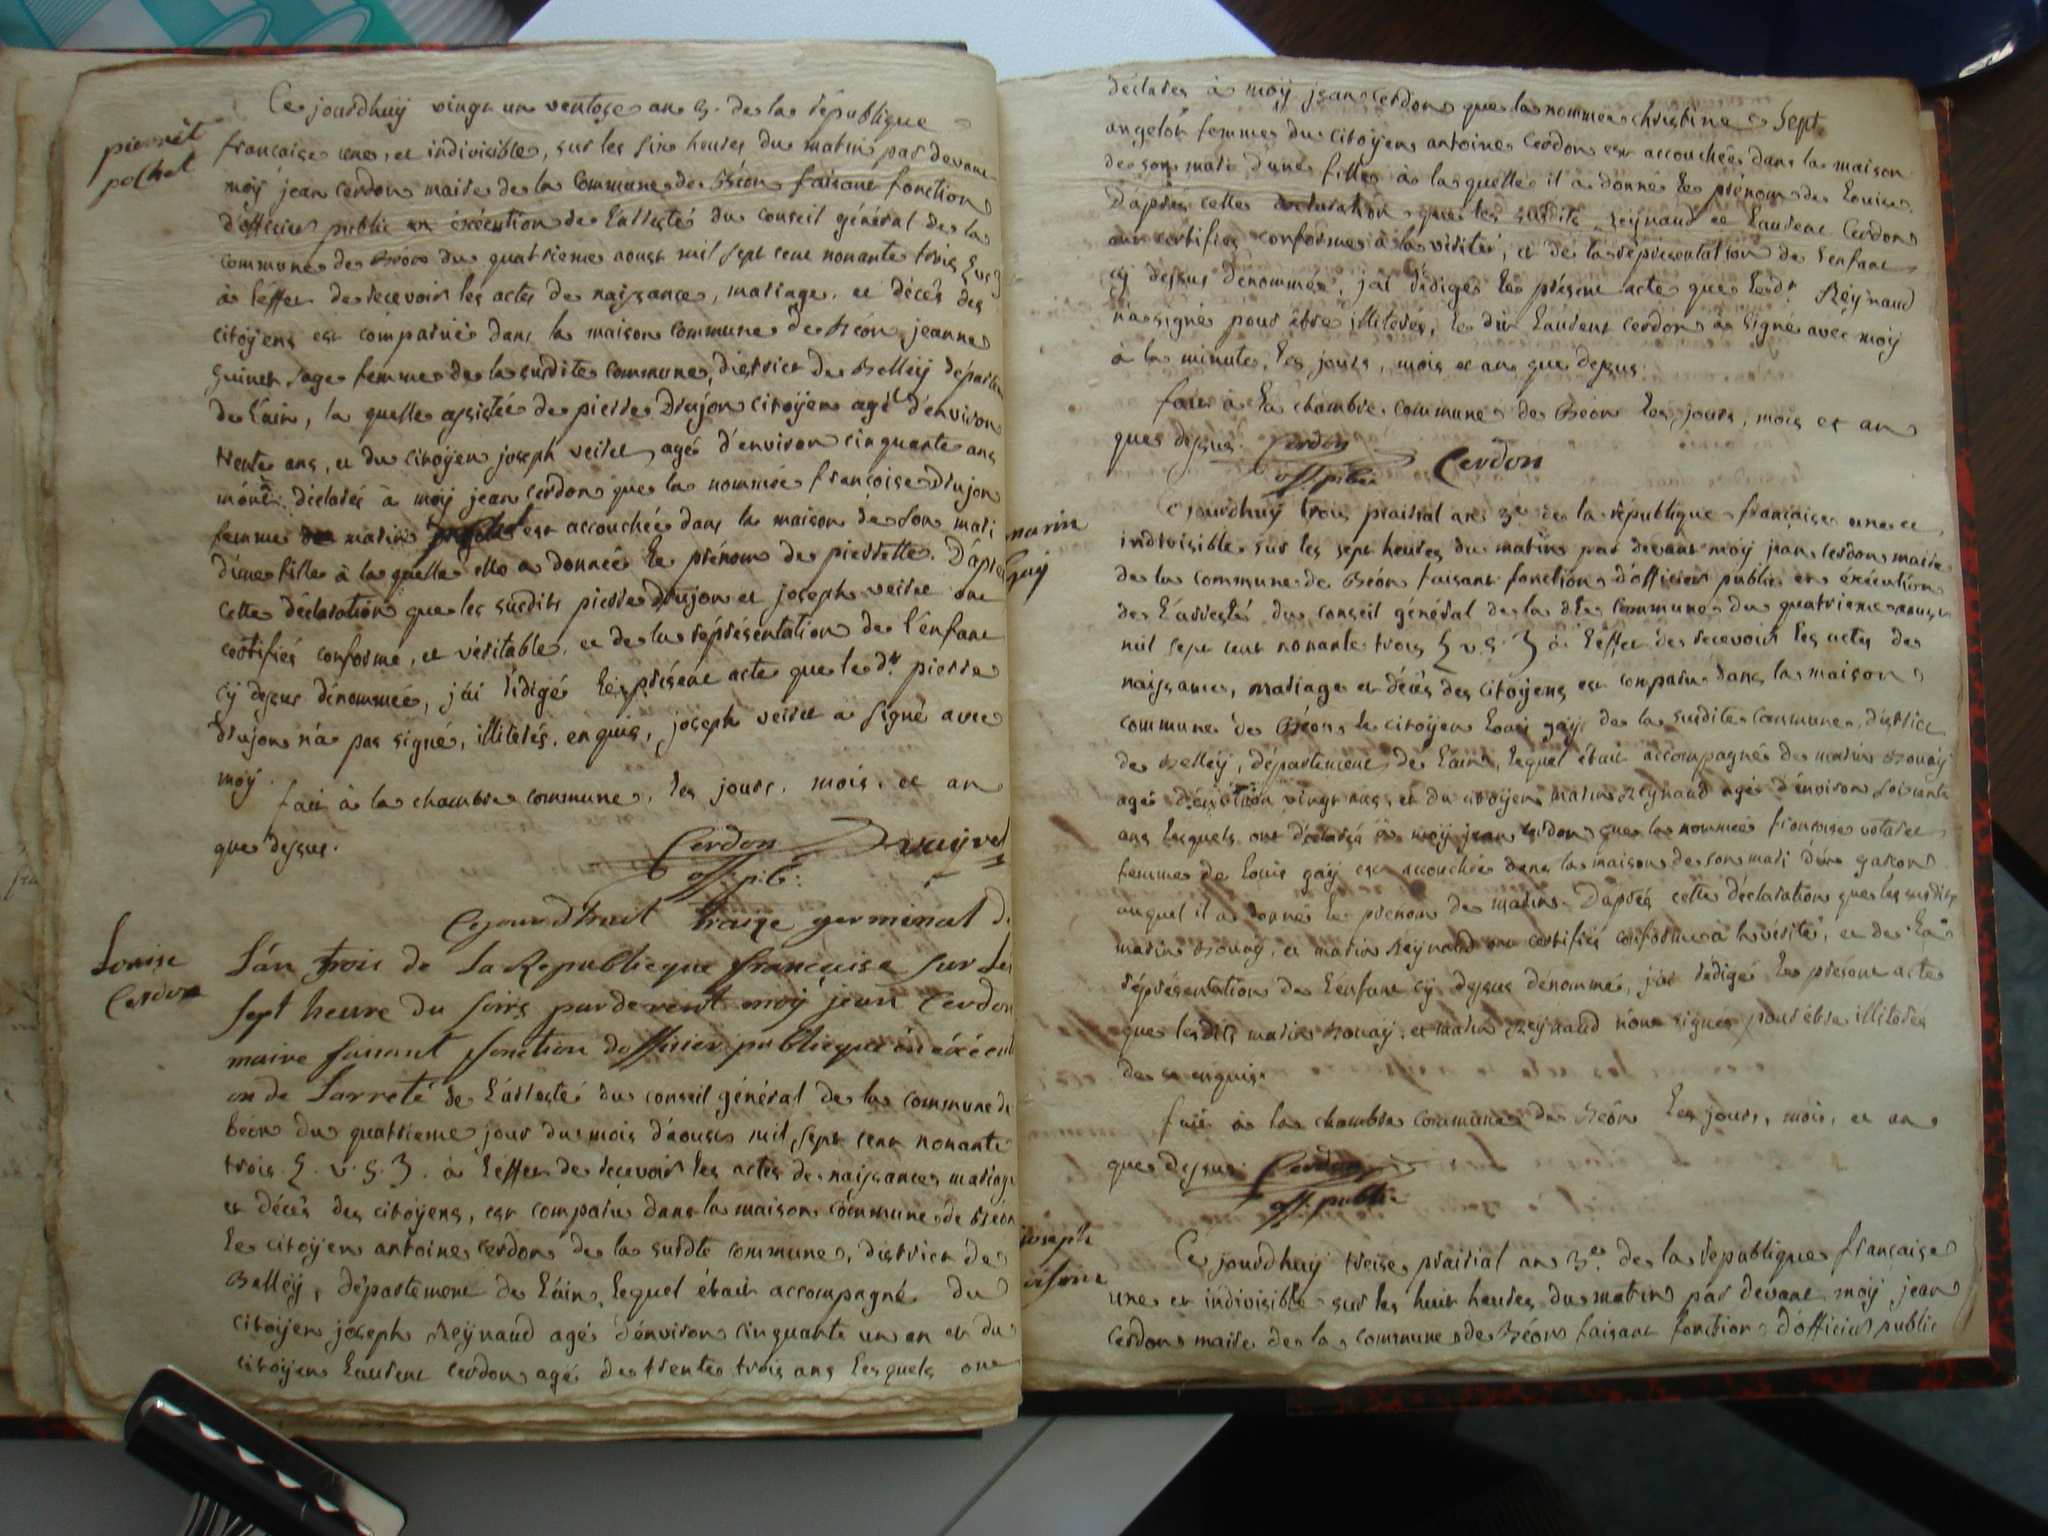 pierrèt
pochet
Ce jourdhuy vingt un ventose an 3. de la république
francaise une, et indivisible, sur les six heures du matin par devant
moÿ jean cerdon maire de la commune de Béon faisant fonction
d'officier public en éxécution de l'alleté du conseil général de la
commune de Béon du quatrieme aoust mil sept cent nonante trois {v.s}
à l'éffet de recevoir les actes de naissance, mariage, et décès des
citoÿens est comparüe dans la maison commune de Béon jeanne
guinet sage femme de la susdite commune, district de Belleÿ départem
de l'ain, la quelle assistée de pierre Drujon citoÿen agé d'environ
trente ans, et du citoÿen joseph veiret agé d'environ cinquante ans
déclaré à moÿ jean cerdon que la nommée francoise Drujon
femme marin est accouchée dans la maison de son mari
d'une fille à la quelle elle a donnée le prénom de pierrette. D'après
cette déclaration que les susdits pierre drujon et joseph veiret ont
certifiés conforme, et véritable, et de la réprésentation de l'enfant
cÿ dessus dénommée, j'ai rédigé le présent acte que le dt. pierre
drujon n'a pas signé, illiterés, enquis, joseph veiret a signé avec
moÿ.
fait à la chambre commune, les jours, mois, et an
que dessus.
Cerdon
off. pib:
vuÿret
Louise
Cerdon
Cejourdhuit traize germinal de
L'an trois de La Republieque francaise sur Les
sept heure du soire pardevent moÿ jean Cerdon
maire faisant fonction doffisier publieque en éxécuti
on de Larreté de l'arresté du conseil général de la commune de
béon du quatrieme jour du mois d'aoust mil sept cent nonante
trois {.v.s.}. à l'effet de recevoir les actes de naissances mariage
et décès des citoÿens, est comparu dans la maison commune de Béon
le citoÿen antoine cerdon de la susdte commune, district de
Belleÿ, département de l'ain, lequel était accompagné du
citoÿen joseph Reÿnaud agé d'énviron cinquante un an et du
citoÿen laurent cerdon agé de trente trois ans lesquels ont
déclarés à moÿ jean cerdon que la nommée christine Sept.
angelot femme du citoÿen antoine Cerdon est accouchée dans la maison
de son mari d'une fille à la quelle il a donné le prénom de Louise.
D'après cette declaration que les susdits reÿnaud et laurent Cerdon
ont certifiés conforme à la vérité, et de la réprésentation de l'enfant
cÿ dessus dénommée, j'ai rédigé le présent acte que le dt. Reÿnaud
n'a signé pour être illiterés, le dit laurent cerdon a signé avec moÿ
à la minute, les jours, mois et an que dessus.
fait à la chambre commune de Béon les jours, mois et an
ques dessus. Cerdon
off. public
Cerdon
marin
Gaÿ
Cejourdhuÿ trois prairial an 3e de la république francaise une et
indivisible sur les sept heures du matin par devant moÿ jean cerdon maire
de la commune de Béon faisant fonction d'officier public en éxécution
de l'arresté du conseil général de la dte commune du quatrieme aoust
mil sept cent nonante trois {v.s.} à l'éffet de recevoir les actes de
naissance, mariage et décès des citoÿens est comparu dans la maison
commune de Béon le citoÿen Louis gaÿ de la susdite commune, district
de Belleÿ, département de l'ain, lequel était accompagné de marin Bouaÿ
agé d'énviron vingt ans, et du citoÿen marin Reÿnaud agé d'énviron soixante
ans lesquels ont déclarés à moÿ jean cerdon que la nommée francoise
femme de Louis gaÿ est accouchée dans la maison de son mari d'un garcon
auquel il a donné le prénom de marin. D'après cette déclaration que les susdits
marin Bouaÿ, et marin Reÿnaud ont certifiés conforme à la vérité, et de la
réprésentation de l'enfant cÿ dessus dénommé, j'ai rédigé le présent acte
que lesdits marin Bouaÿ, et marin Reÿnaud n'ont signés pour être illiterés
de ce enquis.
fait à la chambre commune de Béon les jours, mois, et an
que dessus. Cerdon
off. public
joseph
Ce jourdhuÿ treise prairial an 3e. de la republique francaise
une et indivisible sur les huit heures du matin par devant moÿ jean
cerdon maire de la commune de Béon faisant fonction d'officier public